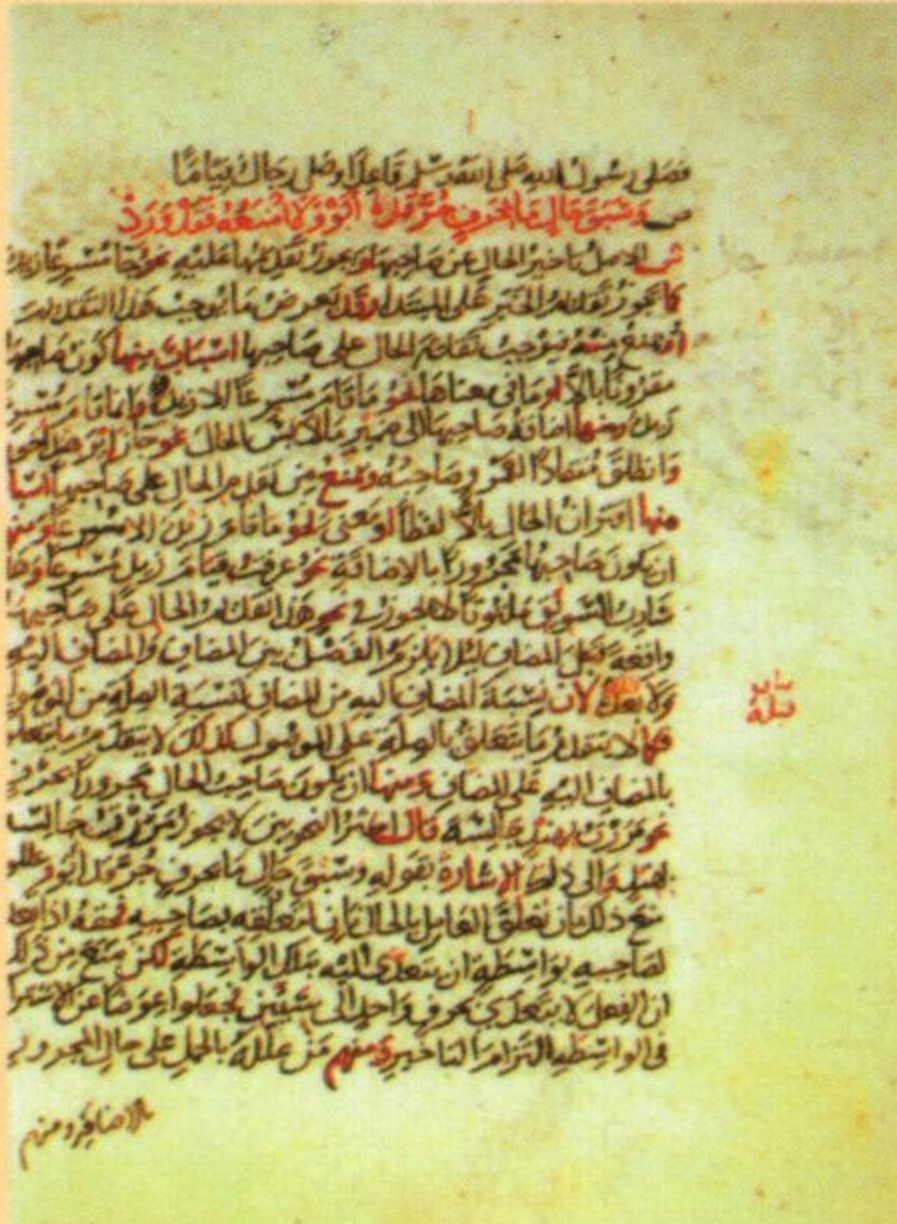 فصلى رسول الله صلى الله عليه وسلم قاعدا وصلى رجال قياما
ص وسبق حال ما بحرف جر قد أبوا ولا أمنعه فقد ورد
ش الاصل تاخير الحال عن صاحبها ويجوز تقديمها عليه نحو جا مسرعا زيد
كما يجوز تقديم الخبر على المبتدا وقد يعرض ما يوجب هذا التقديم
أو يمنع منه فيوجب تقديم الحال على صاحبها اسباب منها كون صاحبها
مقرونا بالا او ما في معناها نحو ما قام مسرعا الا زيد وانما قام مسرعا
زيد ومنها اضافة صاحبها الى ضمير ما لابس الحال نحو جا زائر هند اخوها
وانطلق منقادا لعمرو صاحبه ويمنع من تقديم الحال على صاحبها اسباب
منها اقتران الحال بالا لفظا او معنى نحو ما قام زيد الا مسرعا ومنها
ان يكون صاحبها مجرورا بالاضافة نحو عرفت قيام زيد مسرعا وهذا
شارب السويق ملتوتا لا يجوز في نحو هذا تقديم الحال على صاحبها
واقعة بعد المضاف ليلا يلزم الفصل بين المضاف والمضاف اليه
ولا قبله لان نسبة المضاف اليه من المضاف كنسبة الصلة من الموصول
فكما لا يتقدم ما يتعلق بالصلة على الموصول كذلك لا يتقدم ما يتعلق
بالمضاف اليه على المضاف ومنها ان يكون صاحب الحال مجرورا بحرف
نحو مررت بهند جالسة قال اكثر النحويين لا يجوز مررت جالسة
بهند والى ذلك الاشارة بقوله وسبق حال ما بحرف جر قد أبوا وعللوا
منع ذلك بان تعلق العامل بالحال ثان لتعلقه بصاحبه فحقه اذا تعدى
لصاحبه بواسطة ان يتعدى اليه بتلك الواسطة لكن منع من ذلك
ان الفعل لا يتعدى بحرف واحد الى شيئين فجعلوا عوضا عن الاشتراك
في الواسطة التزام التاخير ومنهم من علله بالحمل على حال المجرور
بالاضافة ومنهم